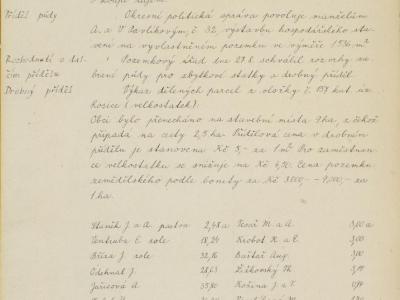 Příděl půdy Okresní politická správa povoluje manželům
A. a V. Pavlíkovým, č. 32, výstavbu hospodářského sta-
vení na vyvlastněném pozemku ve výměře 1596 m²
Rozhodnutí o dal- Pozemkový úřad dne 27. schválil rozvrhy za-
ším přídělu brání půdy pro zbytkové statky a drobný příděl.
Drobný příděl Výkaz dílčích parcel z vložky č. 157 kat. úz.
Kosice (velkostatek).
Obci bylo přenecháno na stavební místa 9 ha, z čehož
připadá na cesty 2,5 ha. Přídělová cena v drobném
přídělu je stanovena Kč 5,- za 1 m². Pro zaměstnan-
ce velkostatku se snižuje na Kč 4,50. Cena pozemku
zemědělského podle bonity za Kč 3000,- - 9000,- za
1 ha.
Staněk J. a A. pastva 2,48 a M. a A. 3,00 a
Ventruba E. role 18,24 Krobot K. a E. 3,00
Bříza J. role 32,16 Baštař Aug. 3,00
Odehnal J. 28,63 Žitkovský Th.
Janišová A. 35,80 Kožena J. a V.